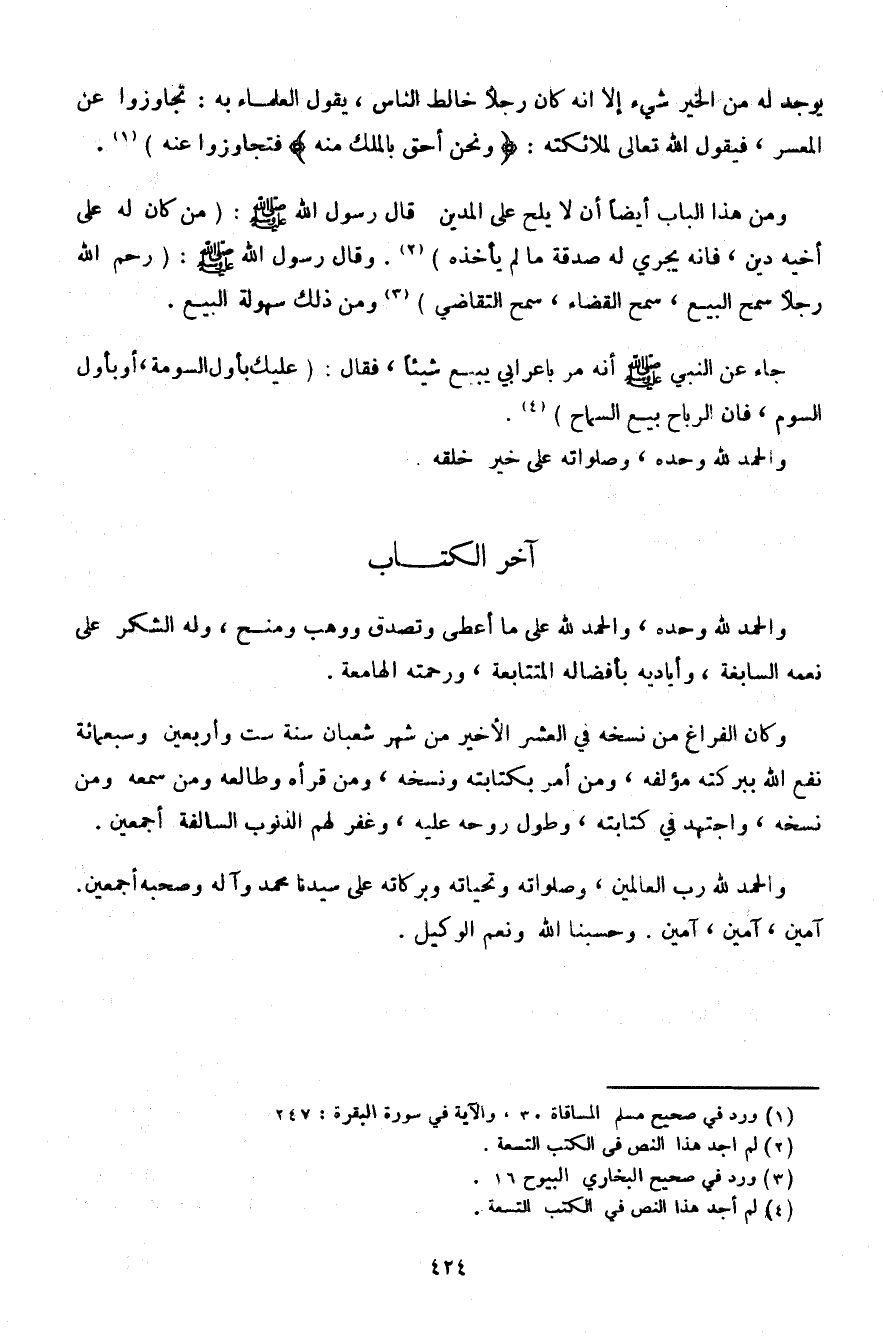 يوجد له من الخير شيء إلا انه كان رجلاً خالط الناس ، يقول العلمـاء به : تجاوزوا عن
المعسر ، فيقول الله تعالى لملائكته : ﴿ ونحن أحق بالملك منه ﴾ فتجاوزوا عنه ) (١) .
ومن هذا الباب أيضاً أن لا يلح على المدين قال رسول الله ﷺ : ( من كان له على
أخيه دين ، فانه يجري له صدقة ما لم يأخذه ) (٢) . وقال رسول الله ﷺ : ( رحم الله
رجلاً سمح البيع ، سمح القضاء ، سمح التقاضي ) (٣) ومن ذلك سهولة البيع .
جاء عن النبي ﷺ أنه مر باعرابي يبيع شيئاً ، فقال : ( عليك بأول السومة ، أو بأول
السوم ، فان الرباح بيع السماح ) (٤) .
والحمد لله وحده ، وصلواته على خير خلقه .
آخر الكتـــاب
والحمد لله وحده ، والحمد لله على ما أعطى وتصدق ووهب ومنح ، وله الشكر على
نعمه السابغة ، وأياديه بأفضاله المتتابعة ، ورحمته الهامعة .
وكان الفراغ من نسخه في العشر الأخير من شهر شعبان سنة ست وأربعين وسبعمائة
نفع الله ببركته مؤلفه ، ومن أمر بكتابته ونسخه ، ومن قرأه وطالعه ومن سمعه ومن
نسخه ، واجتهد في كتابته ، وطول روحه عليه ، وغفر لهم الذنوب السالفة أجمعين .
والحمد لله رب العالمين ، وصلواته وتحياته وبركاته على سيدنا محمد وآله وصحبه أجمعين .
آمين ، آمين ، آمين . وحسبنا الله ونعم الوكيل .
(١) ورد في صحيح مسلم المساقاة ٣٠ ، والآية في سورة البقرة : ٢٤٧
(٢) لم اجد هذا النص في الكتب التسعة .
(٣) ورد في صحيح البخاري البيوح ١٦ .
(٤) لم أجد هذا النص في الكتب التسعة .
٤٢٤